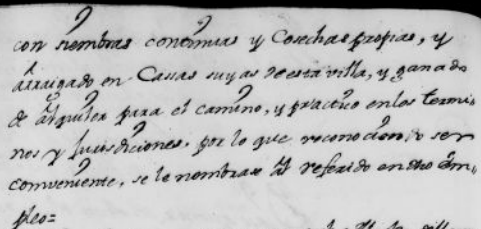 con siembras continuas y Cosechas propias, y
arraigado en Casas suyas de esta villa, y ganado
de alquiler para el camino, y practico en los termi
nos y Jurisdiciones. por lo que reconociendo ser
conveniente, se le nombrase al referido en dho em
pleo=